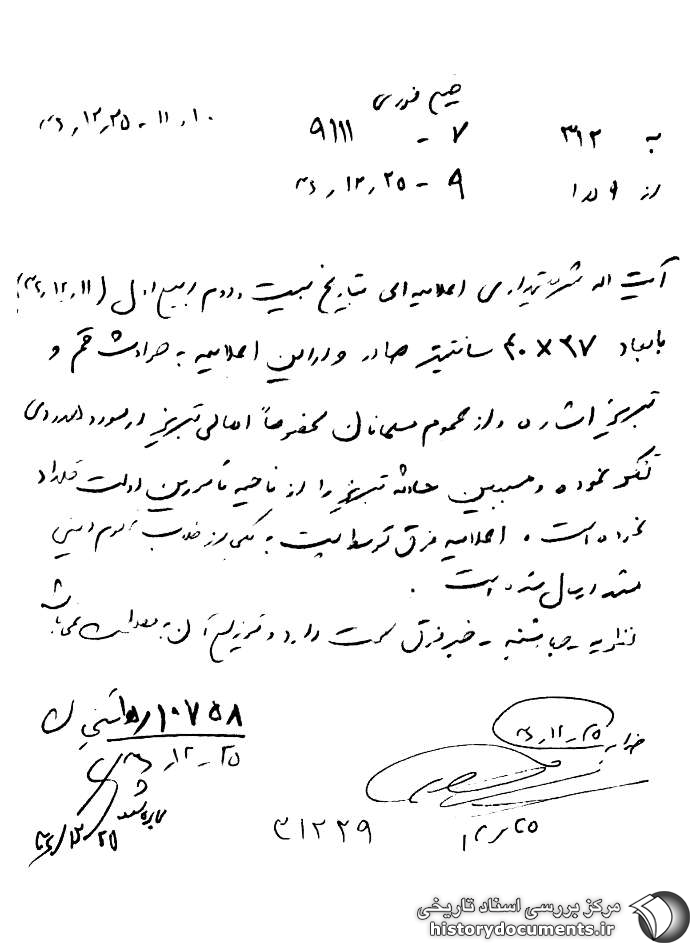 خیلی فوری
به ۳۱۲ ۷ - ۹۱۱۱ ۱۰ر۱۱ - ۲۵ر۱۲ر۳۶
از ۹ ۱ ۹ - ۲۵ر۱۲ر۳۶
آیت اله شریعتمداری اعلامیه ای بتاریخ بیست و دوم ربیع اول (۱۱ر۱۲ر۳۶)
بابعاد ۲۷×۴۰ سانتیمتر صادر و در این اعلامیه به حوادث قم و
تبریز اشاره و از عموم مسلمانان مخصوصاً اهالی تبریز در مورد همدردی
تشکر نموده و مسببین حادثه تبریز را از ناحیه مامورین دولت قلمداد
نموده است. اعلامیه فوق توسط پست به یکی از طلاب علوم دینی
ارسال شده است.
نظریه - شنبه - خبر فوق صحت دارد و توزیع آن به نمی باشد
۱۰۷۵۸
۲۵-۱۲-۳۶
۲۵-۱۲-۳۶
۲۵/۱۲
۳۱۲۲۹
۲۵/۱۲/۳۶
مرکز بررسی اسناد تاریخی
historydocuments.ir